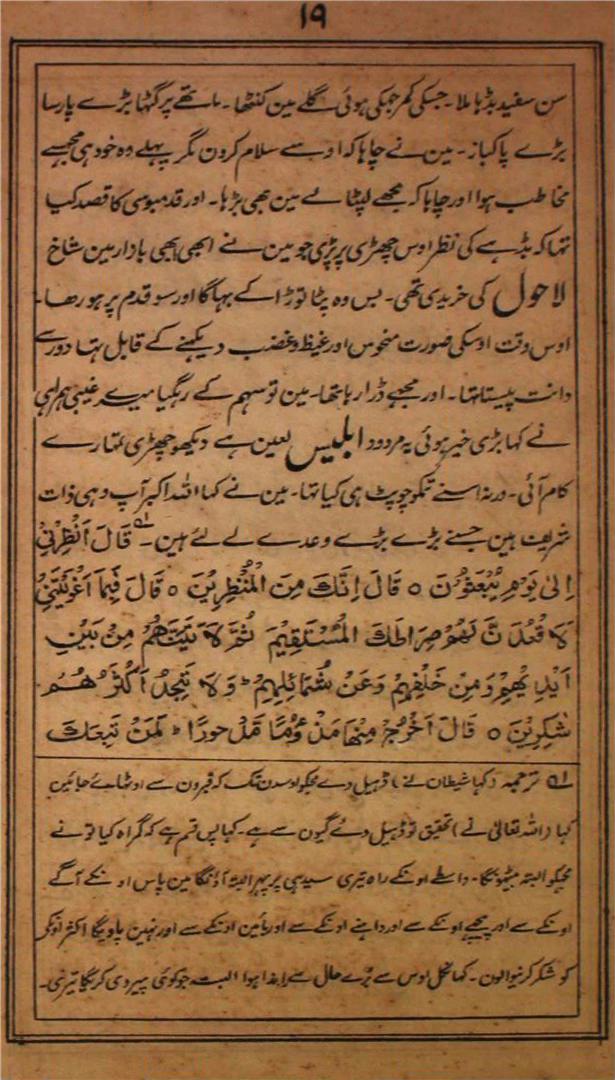 ١٩
سن سفید بڈہا ملا۔ جسکی کمر جھکی ہوئی گلے مین کنٹھا۔ ماتھے پر گٹہا بڑے پارسا
بڑے پاکباز۔ مین نے چاہا کہ اوسے سلام کرون مگر پہلے وہ خود ہی مجھسے
مخاطب ہوا اور چاہا کہ مجھے لپٹالے مین بھی بڑہا۔ اور قدمبوسی کا قصد کیا
تہا کہ بڈہے کی نظر اوس چھڑی پر پڑی جو مین نے ابھی ابھی بازار مین شاخ
لاحول کی خریدی تھی۔ بس وہ پٹا توڑا کے بہاگا اور سو قدم پر ہو رہا۔
اوس وقت اوسکی صورت منحوس اور غیظ و غضب دیکہنے کے قابل تہا دور سے
دانت پیستا تہا۔ اور مجھے ڈرا رہا تہا۔ مین تو سہم کے رہگیا میرے غیبی ہمراہی
نے کہا بڑی خیر ہوئی یہ مردود ابلیس لعین ہے دیکھو چھڑی تمہارے
کام آئی۔ ورنہ اسنے تمکو چوپٹ ہی کیا تہا۔ مین نے کہا اللہ اکبر آپ وہی ذات
شریف ہین جسنے بڑے بڑے وعدے لے لئے ہین۔ لہ قَالَ اَنْظِرْنِیْ
اِلٰی یَوْمِ یُبْعَثُوْنَ ○ قَالَ اِنَّكَ مِنَ الْمُنْظَرِیْنَ ○ قَالَ فَبِمَا اَغْوَیْتَنِیْ
لَاَقْعُدَنَّ لَهُمْ صِرَاطَكَ الْمُسْتَقِیْمَ ثُمَّ لَاٰتِیَنَّهُمْ مِنْ بَیْنِ
اَیْدِیْهِمْ وَمِنْ خَلْفِهِمْ وَعَنْ شَمَائِلِهِمْ ؕ وَلَا تَجِدُ اَكْثَرَهُمْ
شٰكِرِیْنَ ○ قَالَ اخْرُجْ مِنْهَا مَذْءُوْمًا مَدْحُوْرًا ؕ لَمَنْ تَبِعَكَ
لہ ترجمہ (کہا شیطان نے) ڈہیل دے مجکو اوسدن تک کہ قبرون سے اوٹھائے جائین
کہا (اللہ تعالیٰ نے) تحقیق تو ڈہیل دئے گیون سے ہے۔ کہا پس قسم ہے کہ گمراہ کیا تو نے
مجکو البتہ بیٹھونگا۔ واسطے اونکے راہ تیری سیدہی پر پہر البتہ آؤنگا مین پاس اونکے آگے
اونکے سے اور پیچھے اونکے سے اور داہنے اونکے سے اور بائین اونکے سے اور نہین پاویگا اکثر اونکر
کو شکر کرنیوالون۔ کہا نکل اوس سے بُرے حال سے راندا ہوا البتہ جو کوئی پیروی کریگا تیری۔